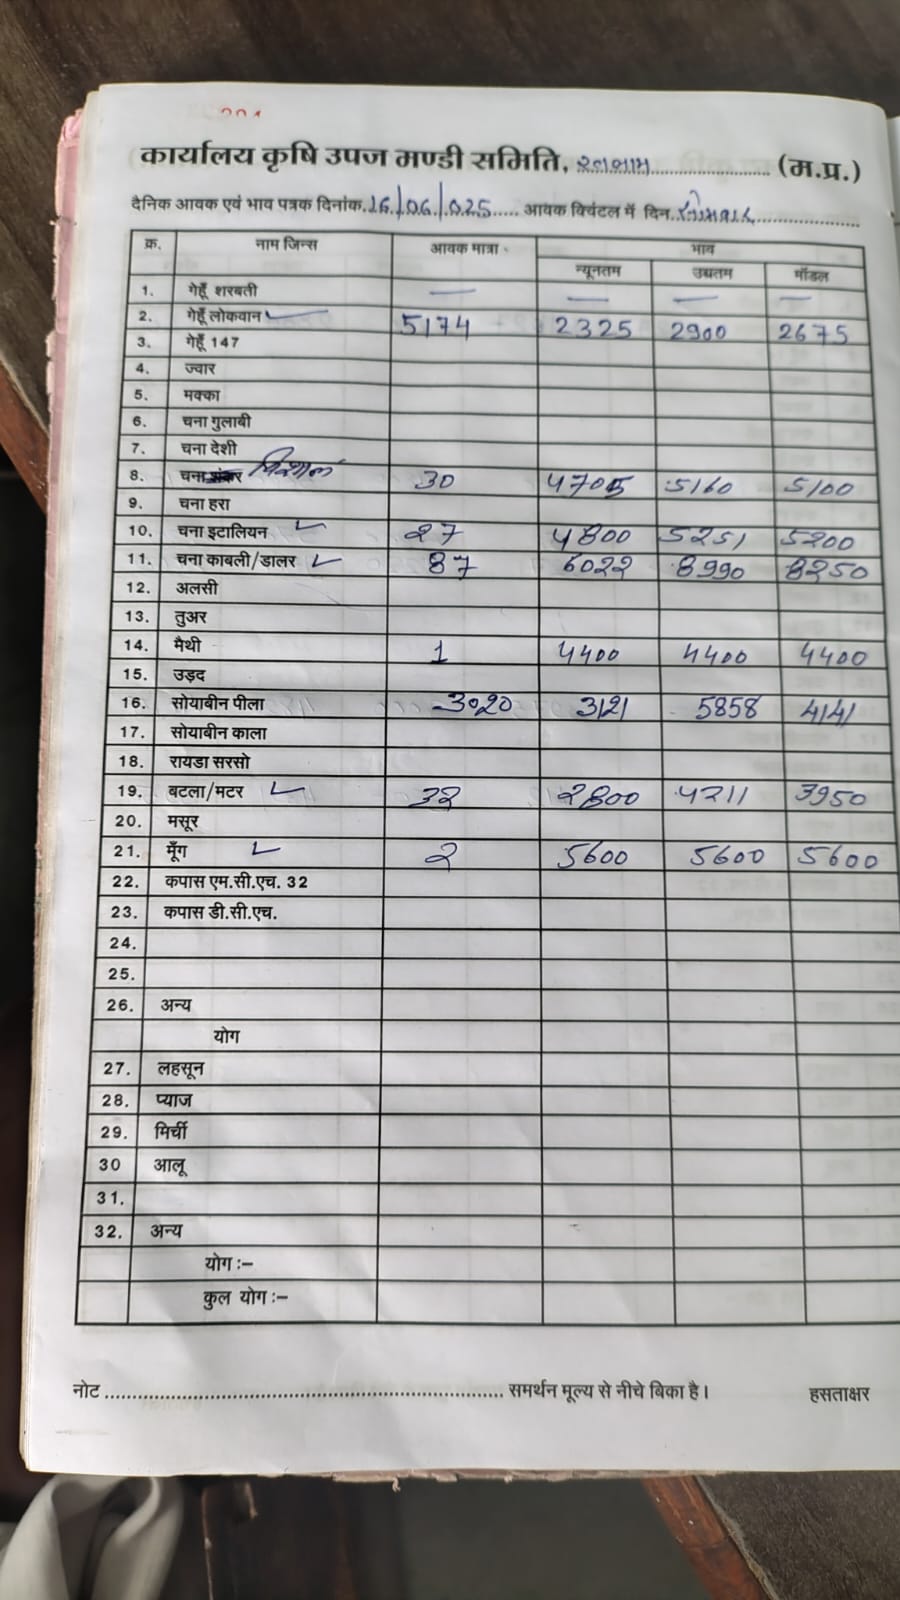 कार्यालय कृषि उपज मण्डी समिति, रतलाम (म.प्र.)
दैनिक आवक एवं भाव पत्रक दिनांक. 16/06/025 आवक क्विंटल में दिन. सोमवार
क्र. नाम जिन्स आवक मात्रा भाव
न्यूनतम उच्चतम मॉडल
1. गेहूँ शरबती — — — —
2. गेहूँ लोकवान 5174 2325 2900 2675
3. गेहूँ 147
4. ज्वार
5. मक्का
6. चना गुलाबी
7. चना देशी
8. चना विशाल 30 4705 5160 5100
9. चना हरा
10. चना इटालियन 27 4800 5251 5200
11. चना काबली/डालर 87 6022 8990 8250
12. अलसी
13. तुअर
14. मैथी 1 4400 4400 4400
15. उड़द
16. सोयाबीन पीला 3020 3121 5858 4141
17. सोयाबीन काला
18. रायडा सरसो
19. बटला/मटर 32 2800 4211 3950
20. मसूर
21. मूँग 2 5600 5600 5600
22. कपास एम.सी.एच. 32
23. कपास डी.सी.एच.
24.
25.
26. अन्य
योग
27. लहसून
28. प्याज
29. मिर्ची
30 आलू
31.
32. अन्य
योग :–
कुल योग :–
नोट समर्थन मूल्य से नीचे बिका है। हसताक्षर